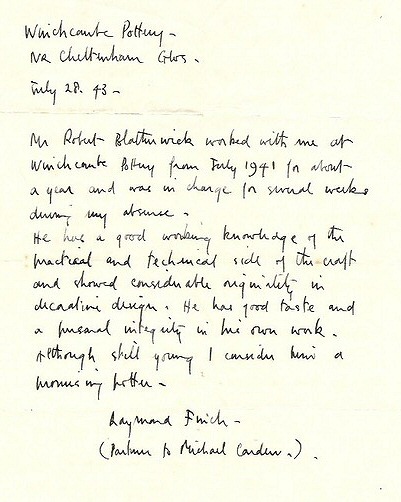 Winchcombe Pottery -
Nr Cheltenham Glos.
July 28. 43 -
Mr Robert Blatherwick worked with me at
Winchcombe Pottery from July 1941 for about
a year and was in charge for several weeks
during my absence.
He has a good working knowledge of the
practical and technical side of the craft
and showed considerable originality in
decorative design. He has good taste and
a personal integrity in his own work.
Although still young I consider him a
promising potter -
Raymond Finch -
(Partner to Michael Cardew.).